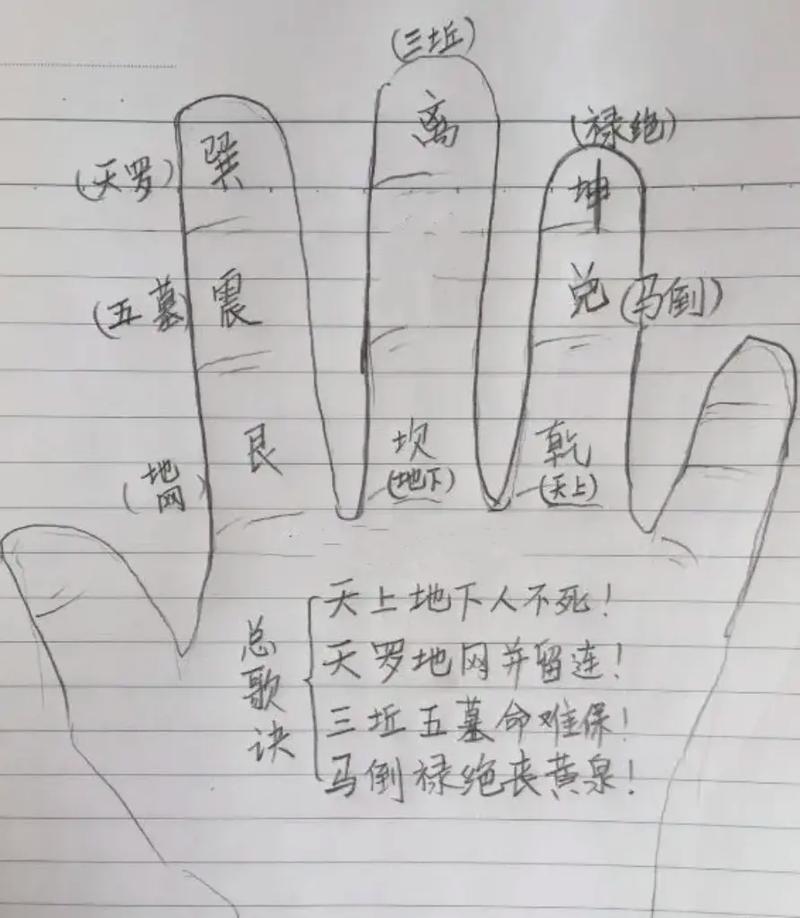 (三坵)
离
(禄绝)
(天罗) 巽
坤
(五墓) 震
兑 (马倒)
(地网) 艮
坎
(地下)
乾
(天上)
总歌诀
天上地下人不死!
天罗地网并留连!
三坵五墓命难保!
马倒禄绝丧黄泉!